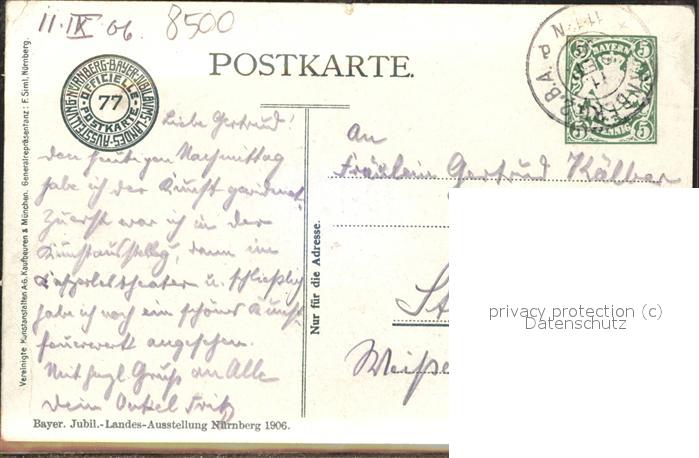 11. IX 06.
8500
POSTKARTE.
NÜRNBERG-BAYER-JUBILÄUMS-LANDES-AUSSTELLUNG
OFFICIELLE POSTKARTE
77
BAYERN
5 5
5 PFENNIG 5
Vereinigte Kunstanstalten A-G. Kaufbeuren & München. Generalrepräsentanz: F. Siml, Nürnberg.
Liebe Gertrud!
den heutigen Nachmittag
habe ich der Kunst gewidmet.
Zuerst war ich in der
Kunstausstellg, dann im
Kasperletheater u. schließlich
habe ich noch ein schönes Kunst-
feuerwerk angesehen.
Mit hzgl Gruß an Alle
Dein Onkel Fritz
Bayer. Jubil.-Landes-Ausstellung Nürnberg 1906.
Nur für die Adresse.
An
Fräulein Gertrud Kälber
St
Weiße
privacy protection (c)
Datenschutz